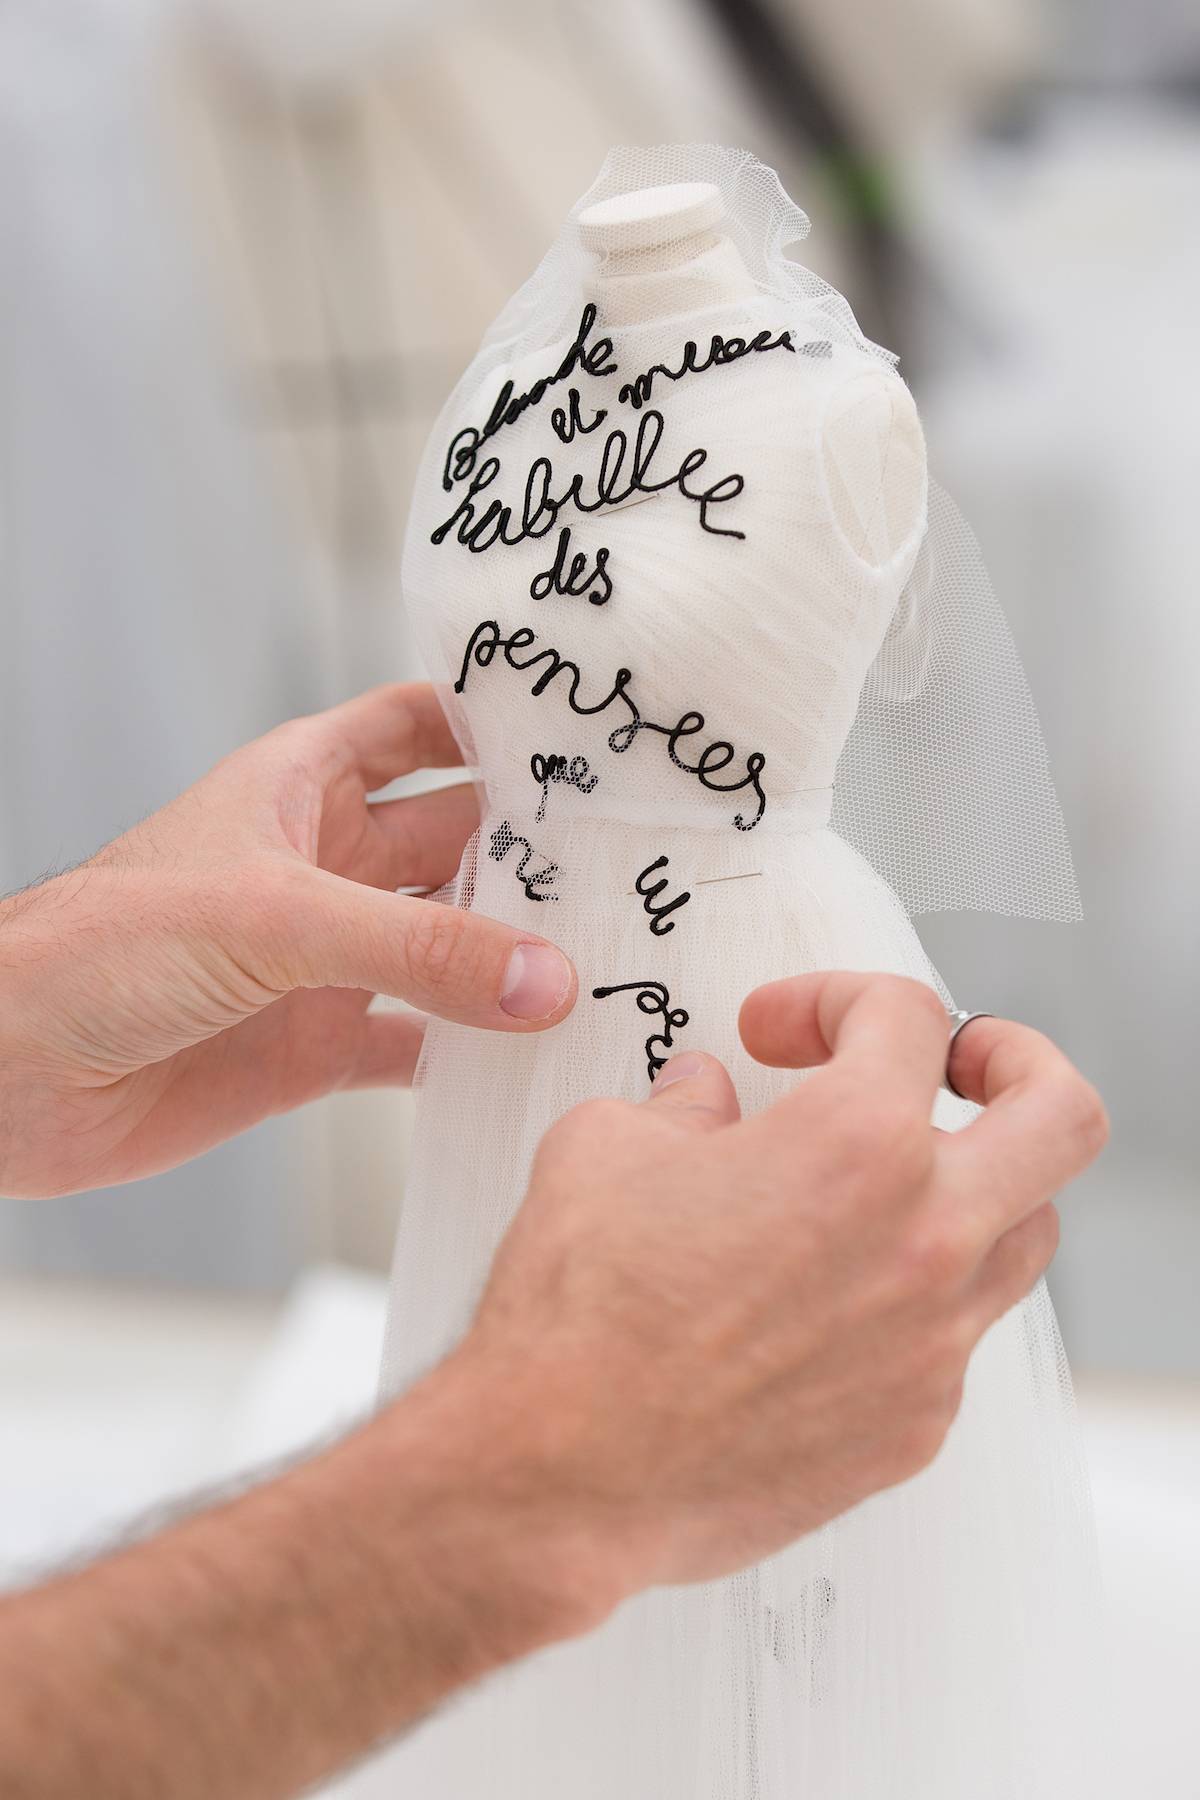 Blanche
et muette
habillée
des
pensées
que
me